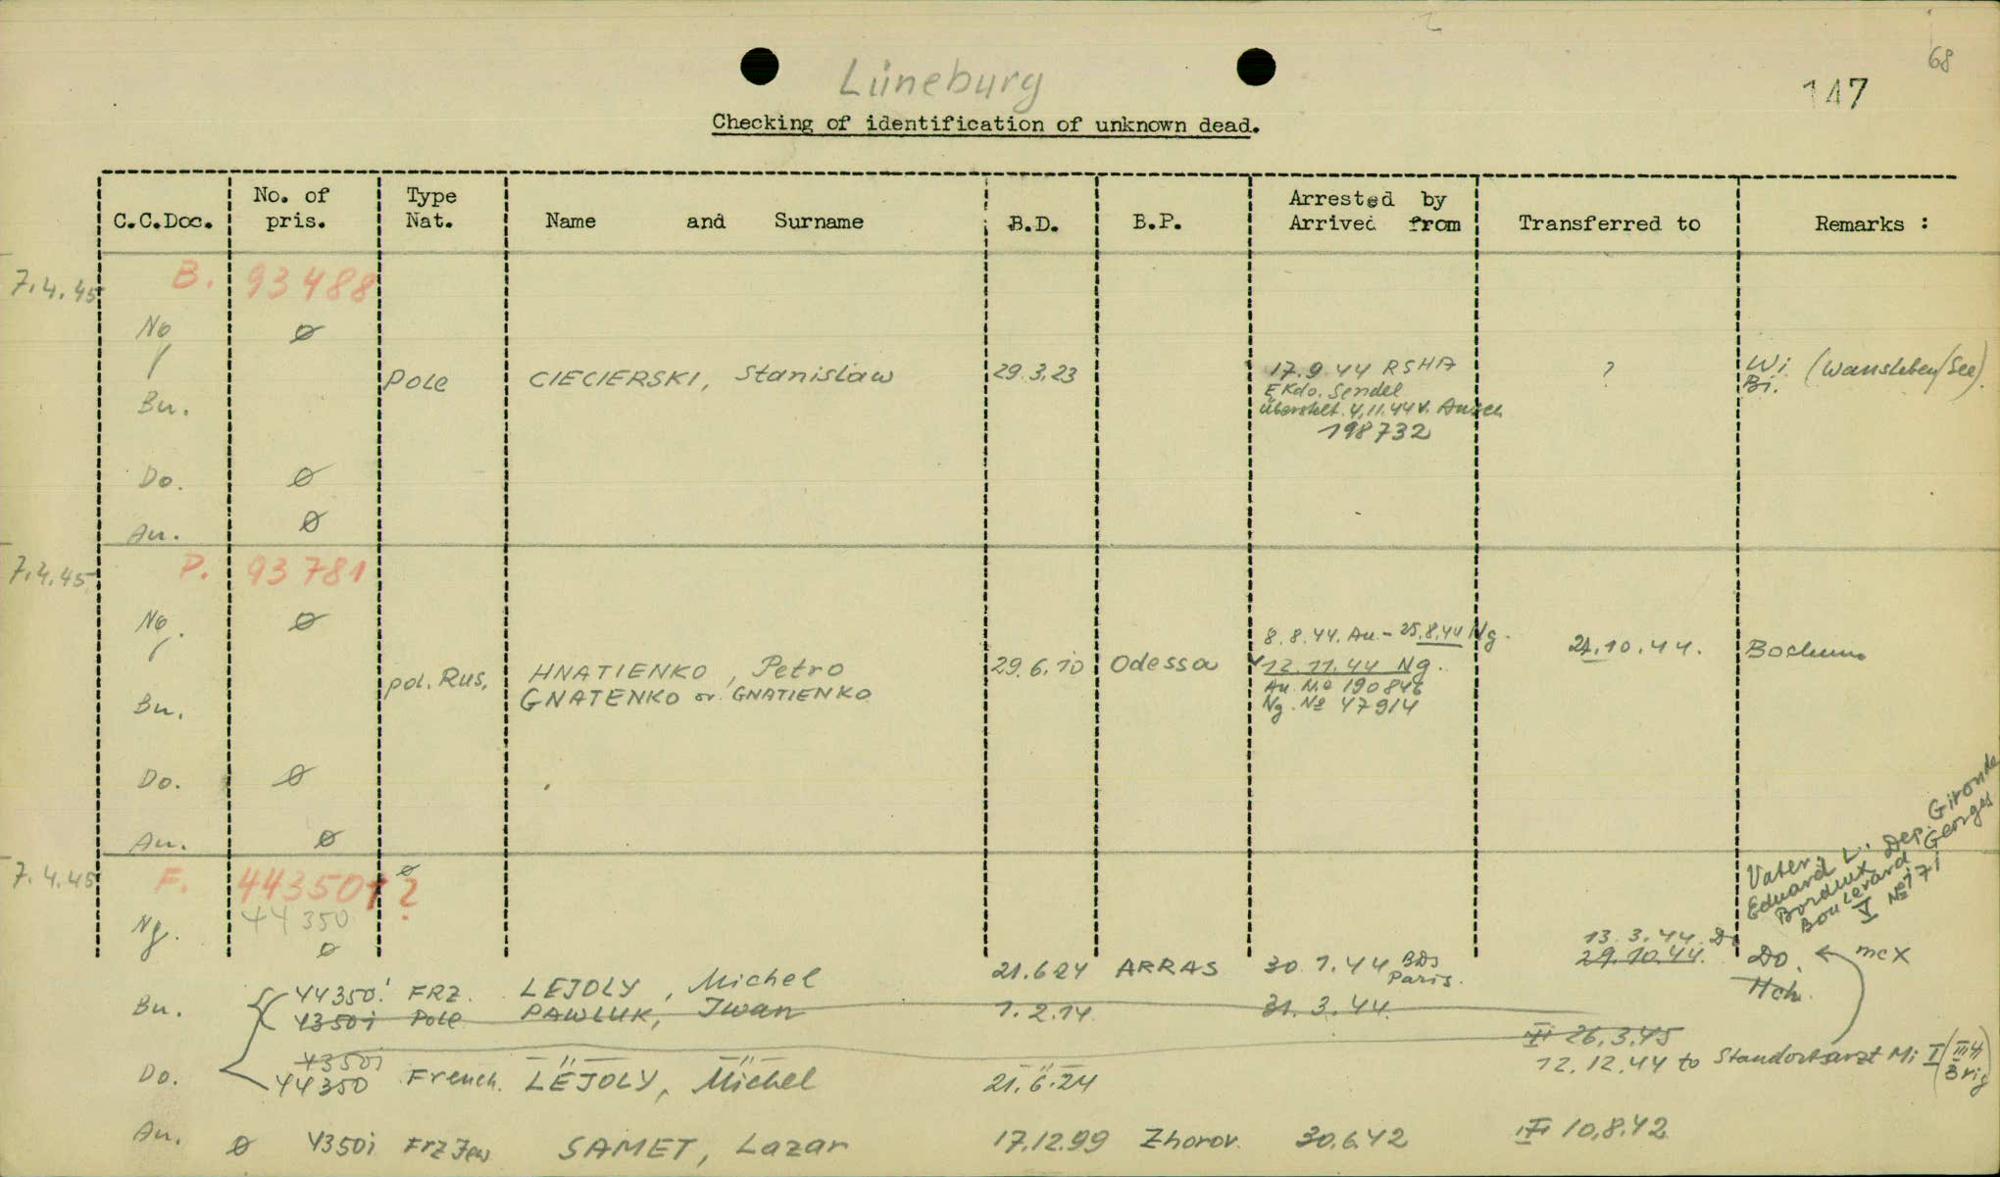 68
147
Lüneburg
Checking of identification of unknown dead.
C.C.Doc. No. of pris. Type Nat. Name and Surname B.D. B.P. Arrested by Arrived from Transferred to Remarks :
7.4.45 B. 93488
No ø
Pole CIECIERSKI, Stanislaw 29.3.23 17.9.44 RSHA ? Wi. (Wansleben/See).
E Kdo. Sendel Bi.
Bu. überstellt. 4.11.44 v. Ausch
198732
Do. ø
Au. ø
7.4.45 P. 93781
No. ø
8.8.44. Au. - 25.8.44 Ng. 21.10.44. Bochum
pol. Rus. HNATIENKO, Petro 29.6.10 Odessa 12.11.44 Ng.
GNATENKO or GNATIENKO Au. No 190846
Bu. Ng. No 47914
Do. ø
Au. ø
Vater: L.
Eduard Dep. Gironde
Bordeux
Boulevard Georges
V No 171
7.4.45 F. 443501 ?
ø
Ng. 44350
ø
13.3.44. Do
29.10.44. Do. ← mcX
Hch.
Bu. 44350! FRZ. LEJOLY, Michel 21.6.24 ARRAS 30.1.44 BDS Paris.
4350i Pole PAWLUK, Iwan 1.2.14 31.3.44.
26.3.45
4350i
Do. 44350 French. LEJOLY, Michel 21.6.24 12.12.44 to Standortsarzt Mi I (III 4 Brig)
Au. ø 4350i Frz Jew SAMET, Lazar 17.12.99 Zhorov. 30.6.42 10.8.42